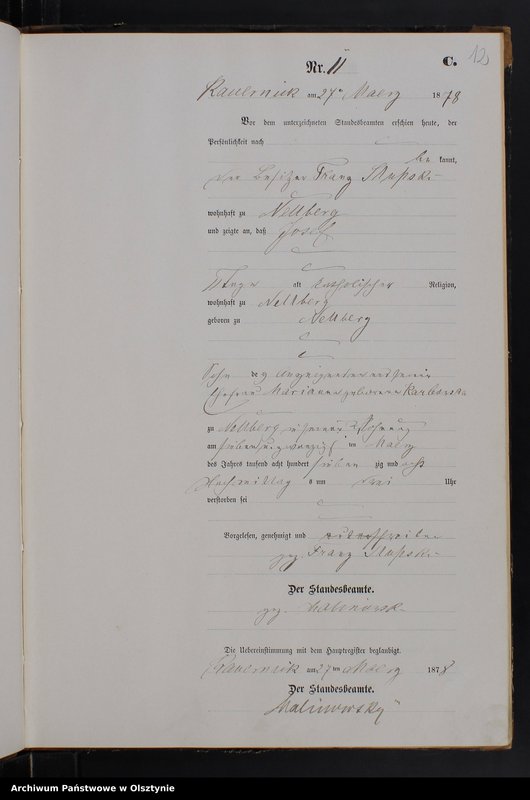 12
Nr. 11 C.
Rauernick am 27ten Maerz 1878
Vor dem unterzeichneten Standesbeamten erschien heute, der
Persönlichkeit nach
be kannt,
der Besitzer Franz
wohnhaft zu Nellberg
und zeigte an, daß Josef
alt katholischer Religion,
wohnhaft zu Nellberg
geboren zu Nellberg
Sohn des Anzeigenden und seiner
Ehefrau Marianna geborenen
zu Nellberg in seiner Wohnung
am siebenundzwanzigsten Maerz
des Jahres tausend acht hundert sieben zig und acht
Nachmittag s um drei Uhr
verstorben sei
Vorgelesen, genehmigt und unterschrieben
gez. Franz
Der Standesbeamte.
gez. Malinowski
Die Uebereinstimmung mit dem Hauptregister beglaubigt.
Rauernick am 27ten Maerz 1878
Der Standesbeamte.
Malinowsky
Archiwum Państwowe w Olsztynie